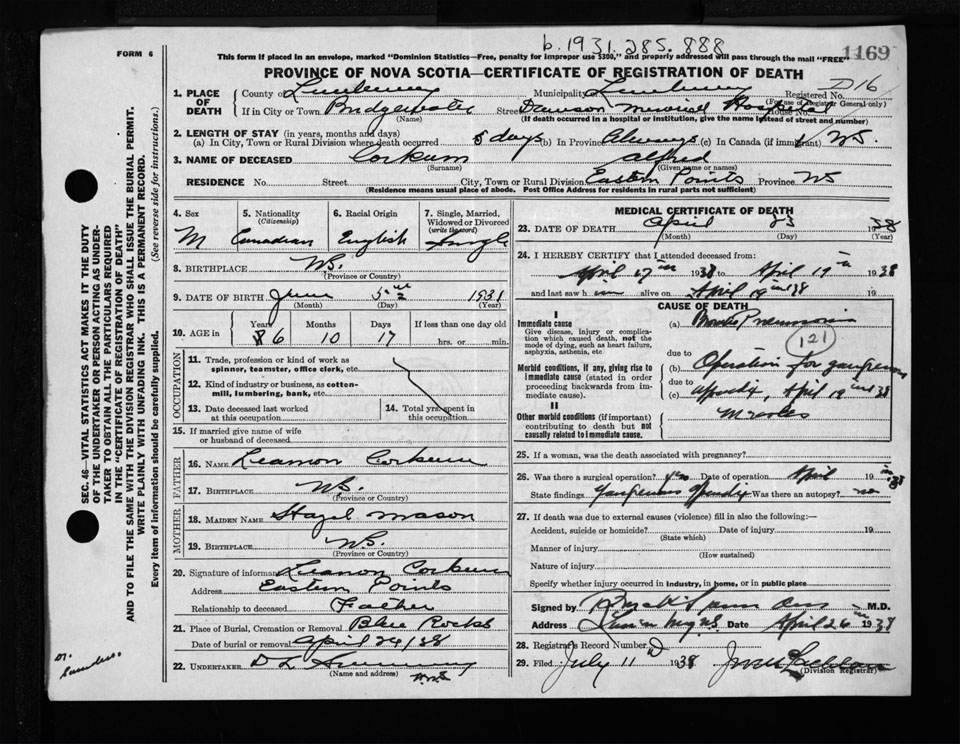 b. 1931. 285. 888
FORM 6
This form if placed in an envelope, marked "Dominion Statistics—Free, penalty for improper use $300," and properly addressed will pass through the mail "FREE"
1169
PROVINCE OF NOVA SCOTIA—CERTIFICATE OF REGISTRATION OF DEATH
D16
1. PLACE OF DEATH County of Lunenburg Municipality Lunenburg Registered No.
(For use of Registrar General only)
If in City or Town Bridgewater Street Dawson Memorial Hospital House No.
(Name) (If death occurred in a hospital or institution, give the name instead of street and number)
2. LENGTH OF STAY (in years, months and days)
(a) In City, Town or Rural Division where death occurred 5 days (b) In Province Always (c) In Canada (if immigrant) NS.
3. NAME OF DECEASED Corkum Alfred
(Surname) (Given name or names)
RESIDENCE No. Street City, Town or Rural Division Eastern Points Province NS
(Residence means usual place of abode. Post Office Address for residents in rural parts not sufficient)
4. Sex M
5. Nationality (Citizenship) Canadian
6. Racial Origin English
7. Single, Married, Widowed or Divorced (write the word) Single
8. BIRTHPLACE NS.
(Province or Country)
9. DATE OF BIRTH June 5 1931
(Month) (Day) (Year)
10. AGE in Years 6 Months 10 Days 17 If less than one day old
hrs. or min.
OCCUPATION
11. Trade, profession or kind of work as spinner, teamster, office clerk, etc.
12. Kind of industry or business, as cotton-mill, lumbering, bank, etc.
13. Date deceased last worked at this occupation
14. Total yrs. spent in this occupation
15. If married give name of wife or husband of deceased
FATHER
16. NAME Leamon Corkum
17. BIRTHPLACE NS.
(Province or Country)
MOTHER
18. MAIDEN NAME Hazel Mason
19. BIRTHPLACE NS.
(Province or Country)
20. Signature of informant Leamon Corkum
Address Eastern Points
Relationship to deceased Father
21. Place of Burial, Cremation or Removal Blue Rocks
Date of burial or removal April 24/38
22. UNDERTAKER D L
(Name and address)
MEDICAL CERTIFICATE OF DEATH
23. DATE OF DEATH April 23 1938
(Month) (Day) (Year)
24. I HEREBY CERTIFY that I attended deceased from:
April 17th 1938 to April 19th 1938
and last saw him alive on April 19th 38
CAUSE OF DEATH
I
Immediate cause
Give disease, injury or complication which caused death, not the mode of dying, such as heart failure, asphyxia, asthenia, etc
(a) Broncho Pneumonia
121
Morbid conditions, if any, giving rise to immediate cause (stated in order proceeding backwards from immediate cause).
due to
(b) Operation for gangrenous
due to
(c) appendix, April 19 38
II
Other morbid conditions (if important) contributing to death but not causally related to immediate cause.
Measles
25. If a woman, was the death associated with pregnancy?
26. Was there a surgical operation? Yes Date of operation April 19 38
State findings Gangrenous Appendix Was there an autopsy? no
27. If death was due to external causes (violence) fill in also the following:—
Accident, suicide or homicide? Date of injury 19
(State which)
Manner of injury
(How sustained)
Nature of injury
Specify whether injury occurred in industry, in home, or in public place
Signed by M.D.
Address Date April 26 1938
28. Registrar's Record Number
29. Filed July 11 1938
(Division Registrar)
SEC. 46—VITAL STATISTICS ACT MAKES IT THE DUTY
OF THE UNDERTAKER OR PERSON ACTING AS UNDERTAKER
TO OBTAIN ALL THE PARTICULARS REQUIRED
IN THE "CERTIFICATE OF REGISTRATION OF DEATH"
AND TO FILE THE SAME WITH THE DIVISION REGISTRAR WHO SHALL ISSUE THE BURIAL PERMIT.
WRITE PLAINLY WITH UNFADING INK. THIS IS A PERMANENT RECORD.
Every item of information should be carefully supplied. (See reverse side for instructions.)